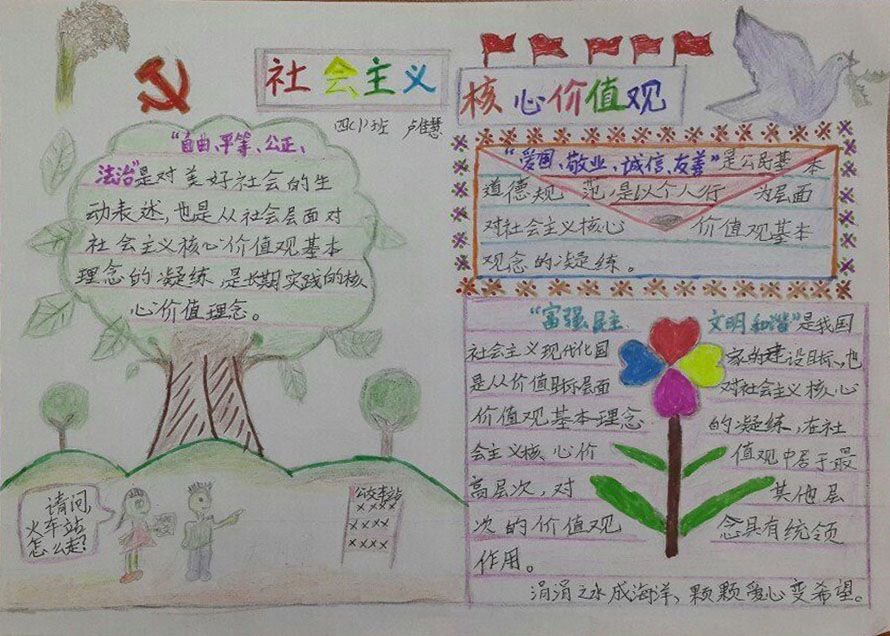 社会主义
核心价值观
四(1)班 卢佳慧
“自由、平等、公正、
法治”是对美好社会的生
动表述,也是从社会层面对
社会主义核心价值观基本
理念的凝练,是长期实践的核
心价值理念。
请问,
火车站
怎么走?
公交车站
××××
×××
×××
“爱国、敬业、诚信、友善”是公民基本
道德规范,是以个人行为层面
对社会主义核心价值观基本
观念的凝练。
“富强民主文明和谐”是我国
社会主义现代化国家的建设目标,也
是从价值目标层面对社会主义核心
价值观基本理念的凝练,在社
会主义核心价值观中居于最
高层次,对其他层
次的价值观念具有统领
作用。
涓涓之水成海洋、颗颗爱心变希望。